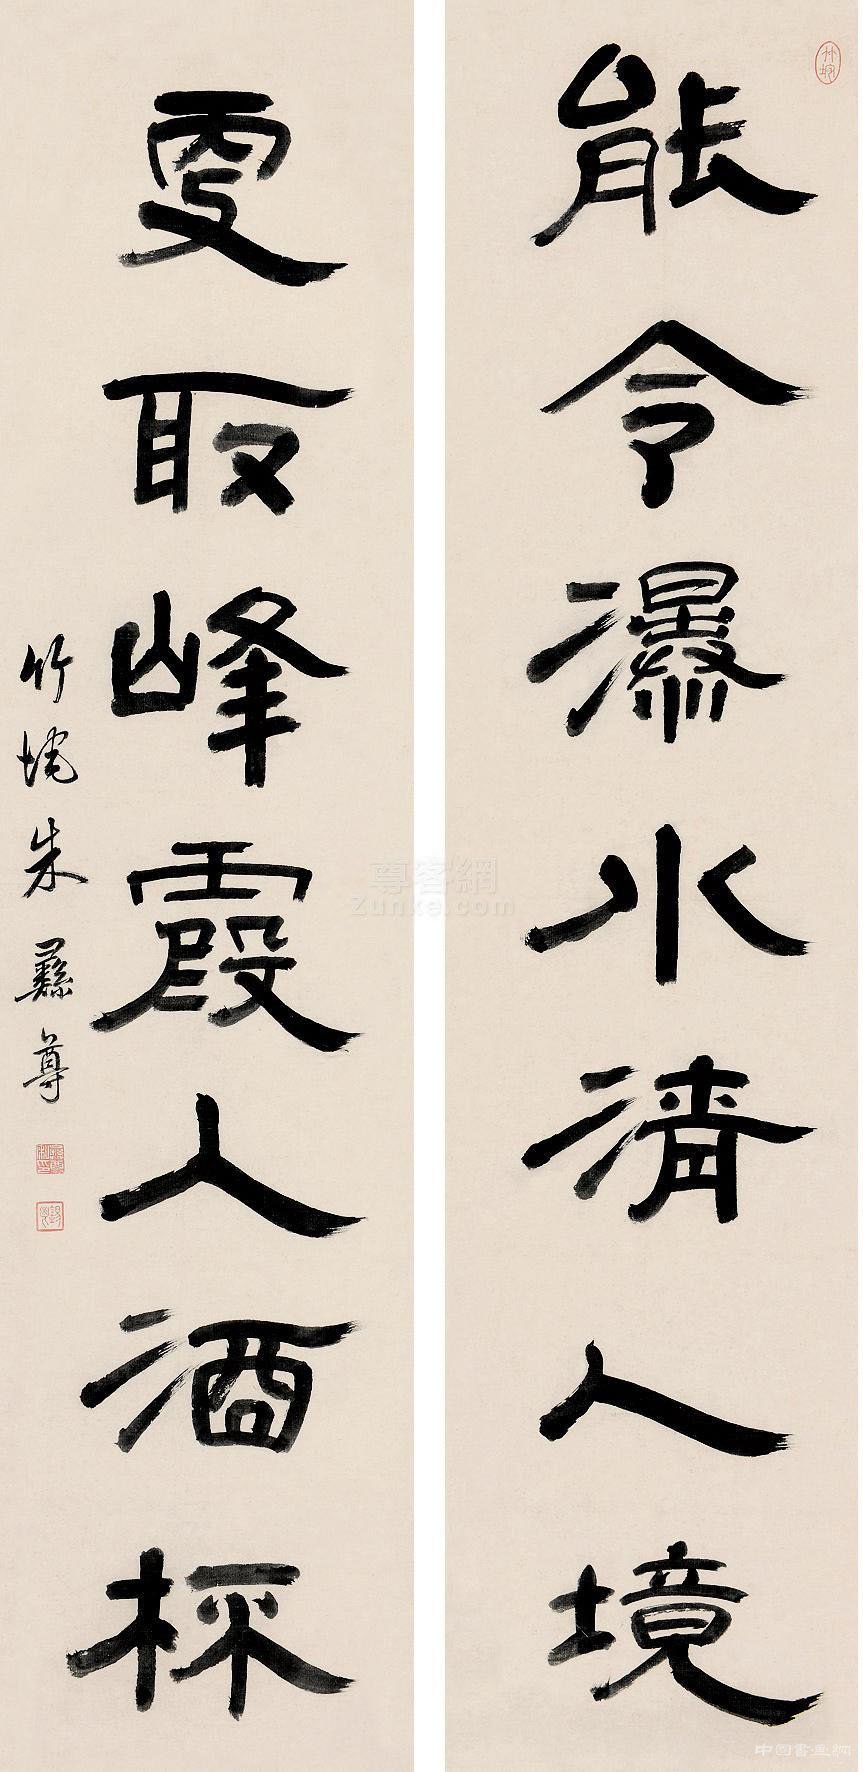 竹垞
能令瀑水清人境
更取峰霞入酒杯
竹垞朱彝尊
尊客網
Zunke.com
中国書画網